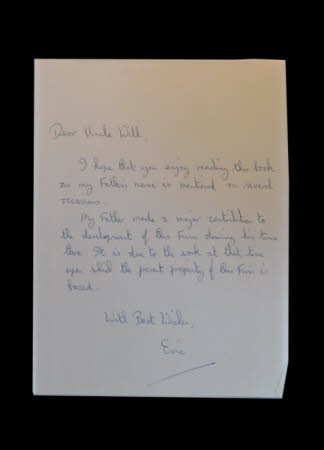 Dear Uncle Will,
I hope that you enjoy reading this book
as my Fathers name is mentioned on several
occasions.
My Father made a major contribution to
the development of this Firm during his time
there. It is due to the work at that time
upon which the present prosperity of this Firm is
based.
With Best Wishes,
Eric